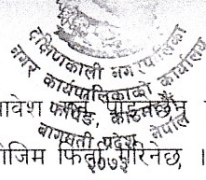 दक्षिणकाली नगरपालिका
नगर कार्यपालिकाको कार्यालय
फर्पिङ, काठमाडौं
बागमती प्रदेश, नेपाल
२०७३
जिम फिर्ता गरिनेछ ।